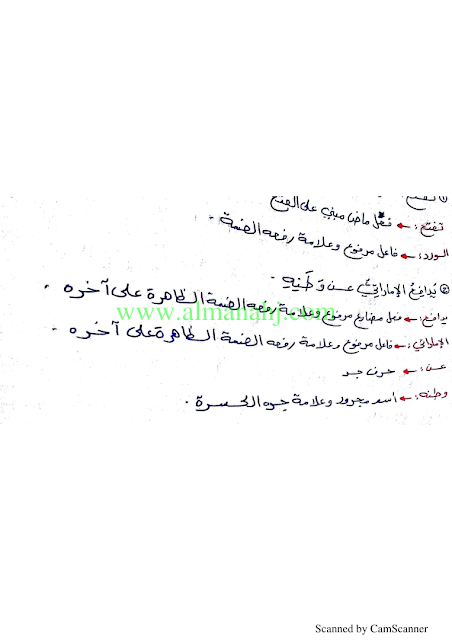 تفتح: ← فعل ماض مبني على الفتح
الورد: ← فاعل مرفوع وعلامة رفعه الضمة .
② يُدافعُ الإماراتيُّ عن وَطَنِهِ .
يدافع: ← فعل مضارع مرفوع وعلامة رفعه الضمة الظاهرة على آخره .
www.almanahj.com
الإماراتي: ← فاعل مرفوع وعلامة رفعه الضمة الظاهرة على آخره .
عن: ← حرف جر
وطنه: ← اسم مجرور وعلامة جره الكسرة .
Scanned by CamScanner